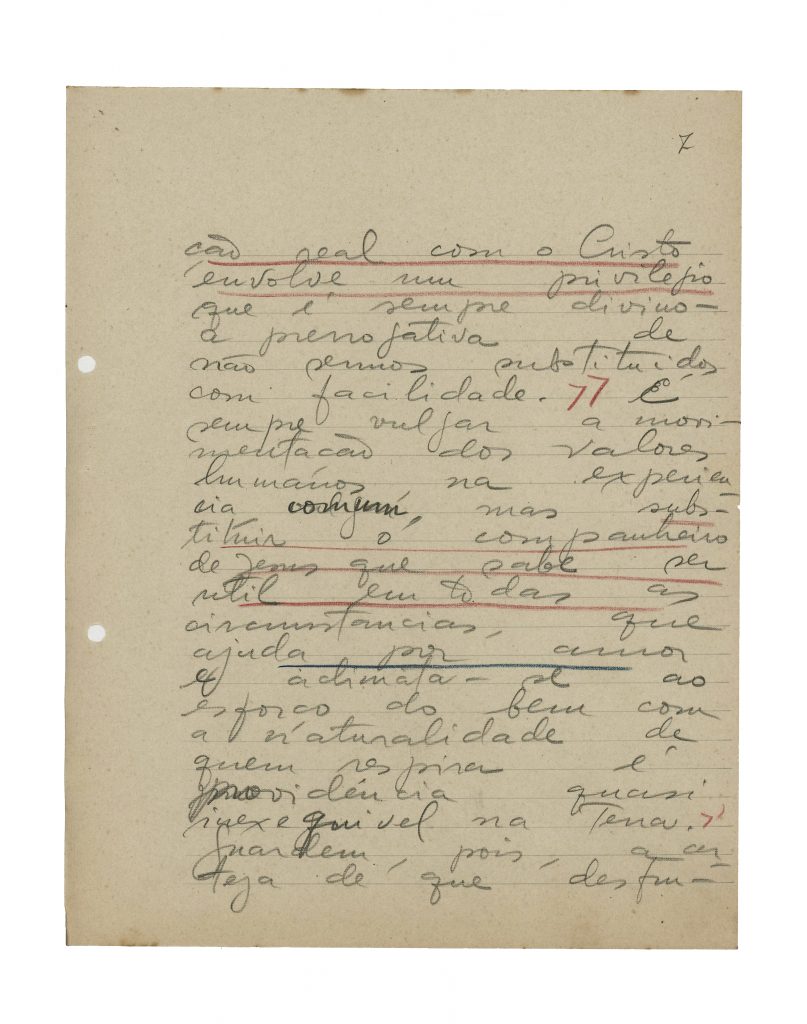 7
ção real com o Cristo
envolve um privilegio
que é sempre divino —
a prerrogativa de
não sermos substituidos
com facilidade. É
sempre vulgar a movi-
mentação dos valores
humanos na experien
cia comum, mas subs-
tituir o companheiro
de Jesus que sabe ser
util em todas as
circumstancias, que
ajuda por amor
e aclimata-se ao
esforço do bem com
a naturalidade de
quem respira é
providência quasi
inexequivel na Terra.
Guardem, pois, a cer
teza de que desfru-